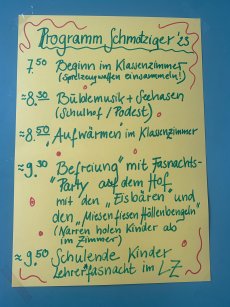 Programm Schmotziger '23
7.50 Beginn im Klassenzimmer
(Spielzeugwaffen einsammeln!)
≈8.30 Bühlemusik + Seehasen
(Schulhof / Podest)
≈8.50 Aufwärmen im Klassenzimmer
≈9.30 "Befreiung" mit Fasnachts-
"Party" auf dem Hof
mit den "Eisbären" und
den "Miesen fiesen Höllenbengeln"
(Narren holen Kinder ab
im Zimmer)
≈9.50 Schulende Kinder
Lehrerfasnacht im LZ